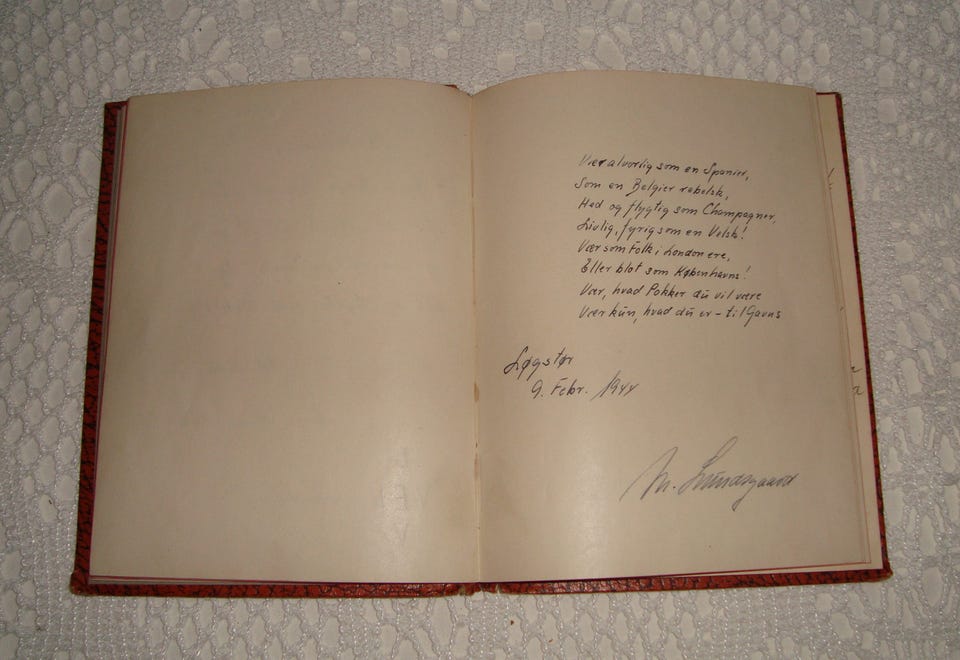 Vær alvorlig som en Spanier,
Som en Belgier rebelsk,
Hed og flygtig som Champagner,
Livlig, fyrig som en Velsk!
Vær som Folk i London ere,
Eller blot som Københavns!
Vær, hvad Pokker du vil være
Vær kun, hvad du er – til Gavns
Løgstør
9. Febr. 1944
M. Lundsgaard